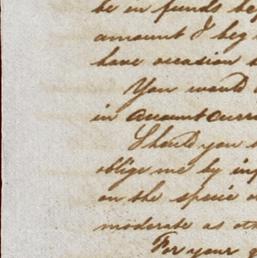 be in funds be
amount I beg
have occasion
You would
in account curr
Should you
oblige me by in
on the specie
moderate as ot
For your